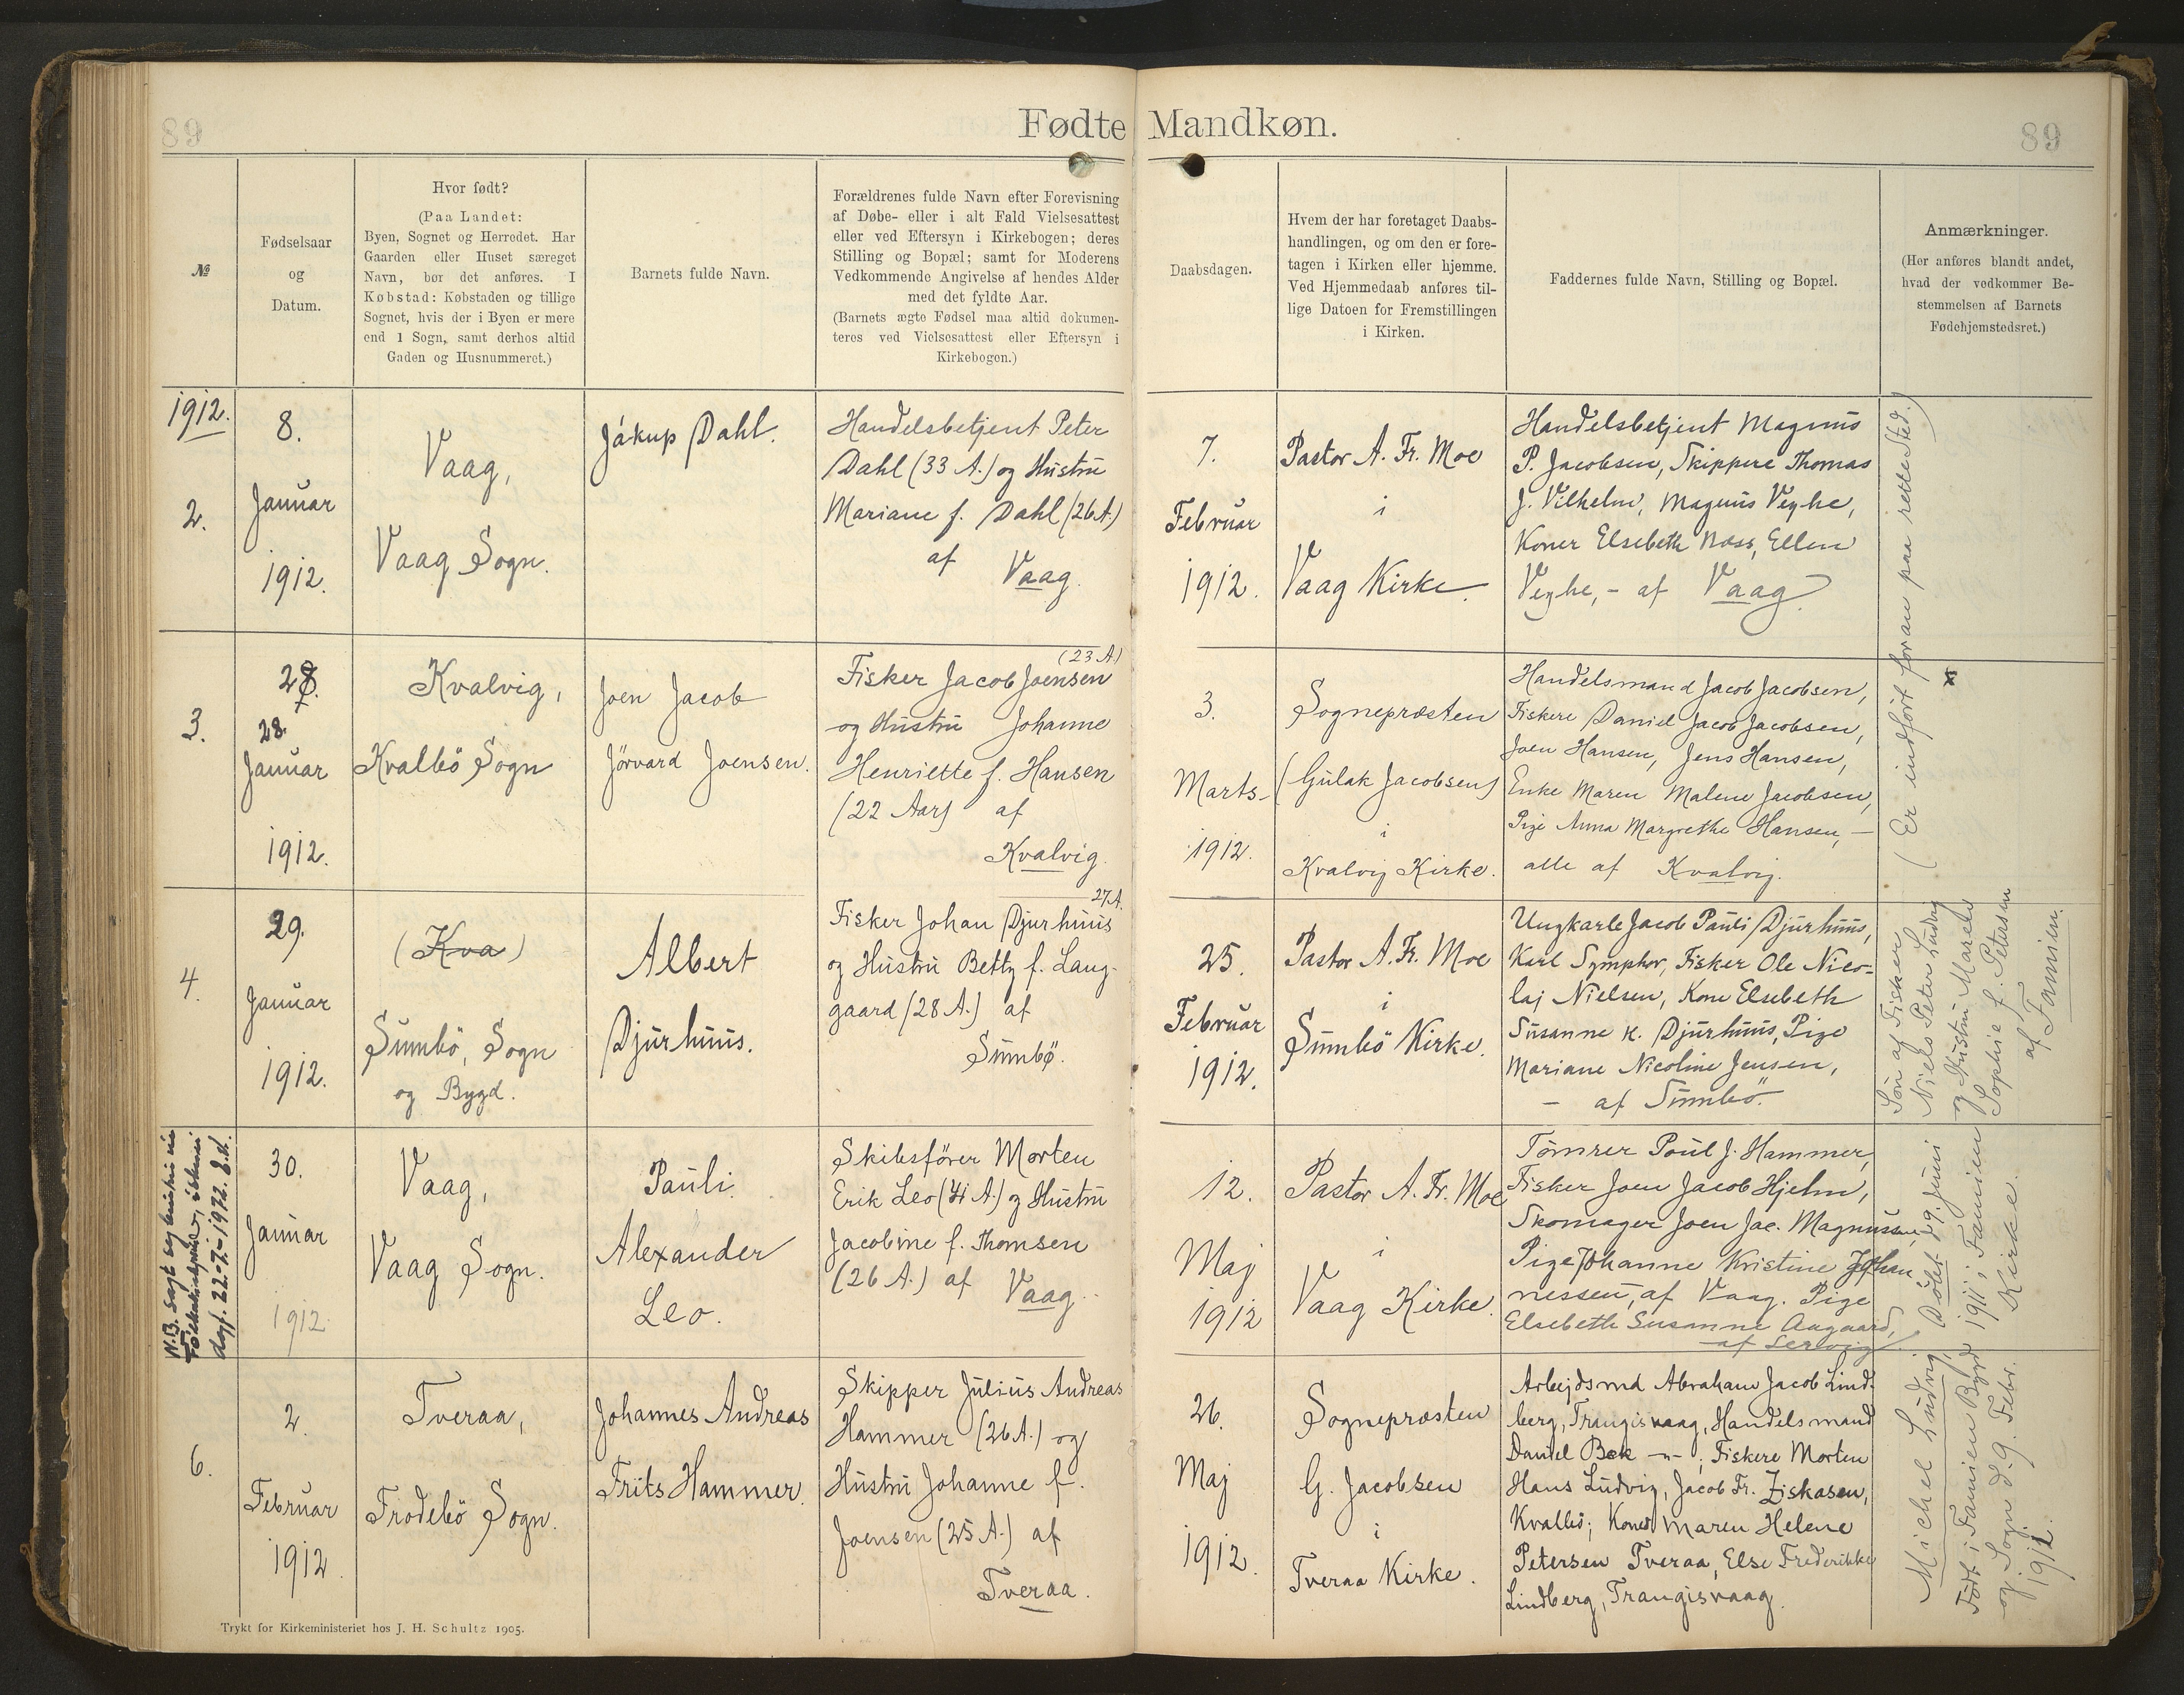 89
Fødte Mandkøn.
89
№
Fødselsaar
og
Datum.
Hvor født?
(Paa Landet:
Byen, Sognet og Herredet. Har
Gaarden eller Huset særeget
Navn, bør det anføres. I
Købstad: Købstaden og tillige
Sognet, hvis der i Byen er mere
end 1 Sogn, samt derhos altid
Gaden og Husnummeret.)
Barnets fulde Navn.
Forældrenes fulde Navn efter Forevisning
af Døbe- eller i alt Fald Vielsesattest
eller ved Eftersyn i Kirkebogen; deres
Stilling og Bopæl; samt for Moderens
Vedkommende Angivelse af hendes Alder
med det fyldte Aar.
(Barnets ægte Fødsel maa altid dokumen-
teres ved Vielsesattest eller Eftersyn i
Kirkebogen.)
Daabsdagen.
Hvem der har foretaget Daabs-
handlingen, og om den er fore-
tagen i Kirken eller hjemme.
Ved Hjemmedaab anføres til-
lige Datoen for Fremstillingen
i Kirken.
Faddernes fulde Navn, Stilling og Bopæl.
Anmærkninger.
(Her anføres blandt andet,
hvad der vedkommer Be-
stemmelsen af Barnets
Fødehjemstedsret.)
1912.
2.
8.
Januar
1912.
Vaag,
Vaag Sogn.
Jákup Dahl.
Handelsbetjent Peter
Dahl (33 A.) og Hustru
Mariane f. Dahl (26 A.)
af Vaag.
7.
Februar
1912.
Pastor A. Fr. Moe
i
Vaag Kirke.
Handelsbetjent Magnus
P. Jacobsen, Skippere Thomas
J. Vilhelm, Magnus Veyhe,
Koner Elsebeth Næss, Ellen
Veyhe, - af Vaag.
3.
28.
Januar
1912.
Kvalvig,
Kvalbö Sogn
Joen Jacob
Jörvard Joensen.
(23 A.)
Fisker Jacob Joensen
og Hustru Johanne
Henriette f. Hansen
(22 Aar) af
Kvalvig.
3.
Marts
1912.
Sognepræsten
(Gulak Jacobsen)
i
Kvalvig Kirke.
Handelsmand Jacob Jacobsen,
Fiskere Daniel Jacob Jacobsen,
Joen Hansen, Jens Hansen,
Enke Maren Malene Jacobsen,
Pige Anna Margrethe Hansen, -
alle af Kvalvig.
4.
29.
Januar
1912.
(Kva)
Sumbö, Sogn
og Bygd.
Albert
Djurhuus.
27 A.
Fisker Johan Djurhuus
og Hustru Betty f. Lang-
gaard (28 A.) af
Sumbö.
25.
Februar
1912.
Pastor A. Fr. Moe
i
Sumbö Kirke.
Ungkarle Jacob Pauli Djurhuus,
Karl Symphor, Fisker Ole Nico-
laj Nielsen, Kone Elsebeth
Susanne K. Djurhuus, Pige
Mariane Nicoline Jensen,
- af Sumbö.
30.
Januar
1912
Vaag,
Vaag Sogn.
Pauli
Alexander
Leo.
Skibsförer Morten
Erik Leo (41 A.) og Hustru
Jacobine f. Thomsen
(26 A.) af Vaag.
12.
Maj
1912
Pastor A. Fr. Moe
i
Vaag Kirke.
Tömrer Poul J. Hammer,
Fisker Joen Jacob Hjelm,
Skomager Joen Jac. Magnussen,
Pige Johanne Kristine Johan
nessen, af Vaag. Pige
Elsebeth Susanne Aagaard,
6.
2.
Februar
1912.
Tveraa,
Frodebö Sogn.
Johannes Andreas
Frits Hammer.
Skipper Julius Andreas
Hammer (26 A.) og
Hustru Johanne f.
Joensen (25 A.) af
Tveraa.
26.
Maj
1912.
Sognepræsten
G. Jacobsen
i
Tveraa Kirke.
Arbejdsmd Abraham Jacob Lind-
berg, Trangisvaag, Handelsmand
Daniel Bæk -"-; Fiskere Morten
Hans Ludvig, Jacob Fr. Ziskasen,
Kvalbö; Koner Maren Helene
Petersen Tveraa, Else Frederikke
Lindberg, Trangisvaag.
(Er indfört foran paa rette Sted.)
Michel Ludvig,
Född i Famien Bygd
og Sogn d. 9. Febr.
1912.
Döbt d 9. Juni
1911 i Famien
Kirke.
Sön af Fisker
Niels Peter Ludvig
og Hustru Marele
Sophie f. Petersen
af
Famien.
Trykt for Kirkeministeriet hos J. H. Schultz 1905.